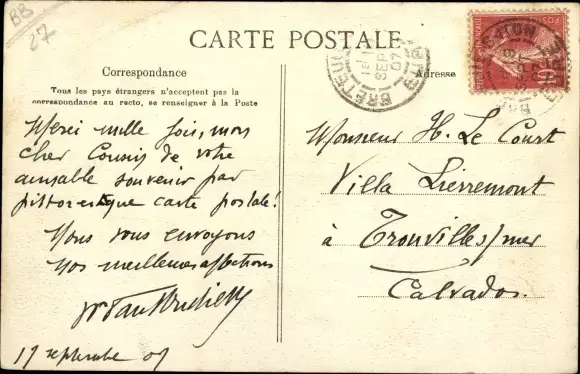 BB
27
CARTE POSTALE
Correspondance
Tous les pays étrangers n'acceptent pas la
correspondance au recto, se renseigner à la Poste
Adresse
Merci mille fois, mon
cher Cousin de votre
aimable souvenir par
pittoresque carte postale!
Nous vous envoyons
nos meilleures affections
17 septembre 07
Monsieur H. Le Court
Villa Lierremont
à Trouville s/mer
Calvados.
BRETEUIL
10